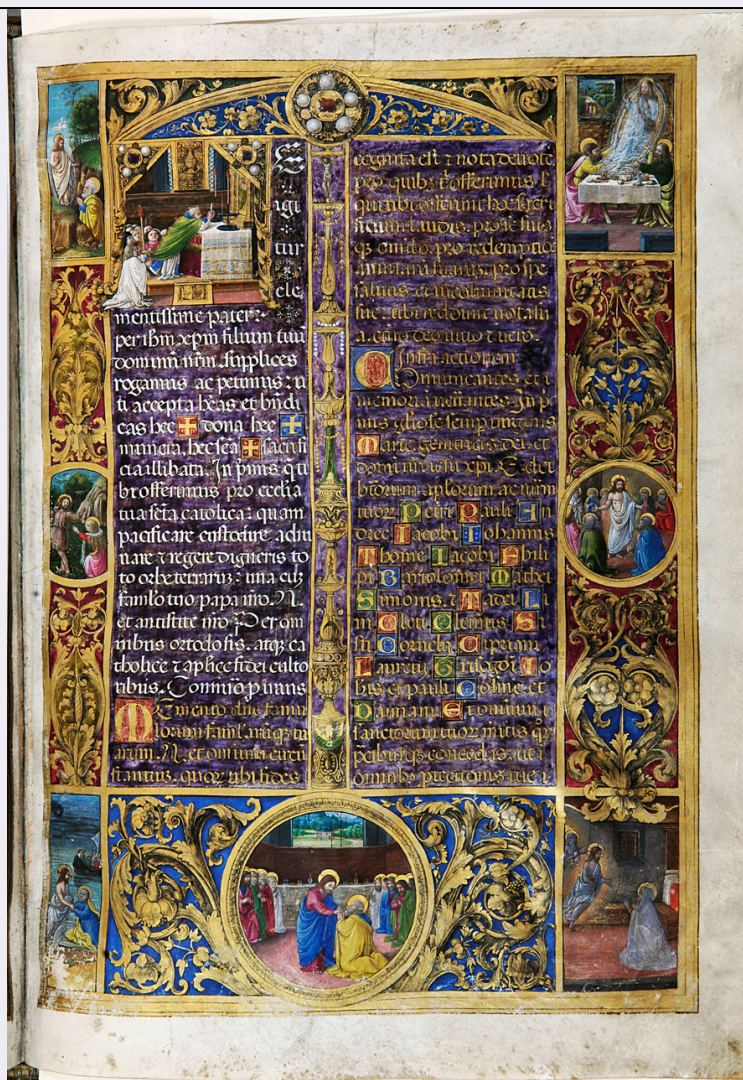 igi
tur
cle
mentissime pater:
per ihm xpm filium tuu
dominu nrm supplices
rogamus ac petimus: u
ti accepta heas et bndi
cas hec ✠ dona hec ✠
munera. hec sca ✠ sacrifi
cia illibata. In pmis q ti
bi offerimus pro ecclia
tua sca catolica: quam
pacificare custodire, adu
nare ⁊ regere digneris to
to orbe terrarum: una cu
famlo tuo papa nro .N.
et antistite nro et om
nibus ortodosis. atq; ca
tholice ⁊ aplice fidei culto
ribus. p viuis
Memento dne famu
lorum famlarumq; tu
arum .N. et omium circu
stantium. quor tibi fides
cognita est ⁊ nota deuotio
pro quibus tibi offerimus l
qui tibi offerunt hoc sacri
ficium laudis. pro se suis
q; omibo. pro redemptio
animarum suarum. pro spe
salutis et incolumitatis
sue. tibi reddunt uota su
a. eterno deo uiuo ⁊ uero.
Infra actionem
Comunicantes. et
memoria uenerantes. In p
mis gliose semp uirginis
Marie genitricis dei. et
domini nri ihu xpi. Sed et
btorum aplorum ac mrm
tuor. Petri Pauli An
dree Iacobi Iohannis
Thome Iacobi Phili
pi Bartolomei Mathei
Simonis. ⁊ Tadei Li
ni Cleti Clemetis Si
sti Cornelij Cipriani
Laureti Grisogoi Io
his et pauli Cosme et
Damiani Et omnium
sanctorum tuor mitis qr
pcibusq; concedas. ut i
omnibus ptectionis tue i